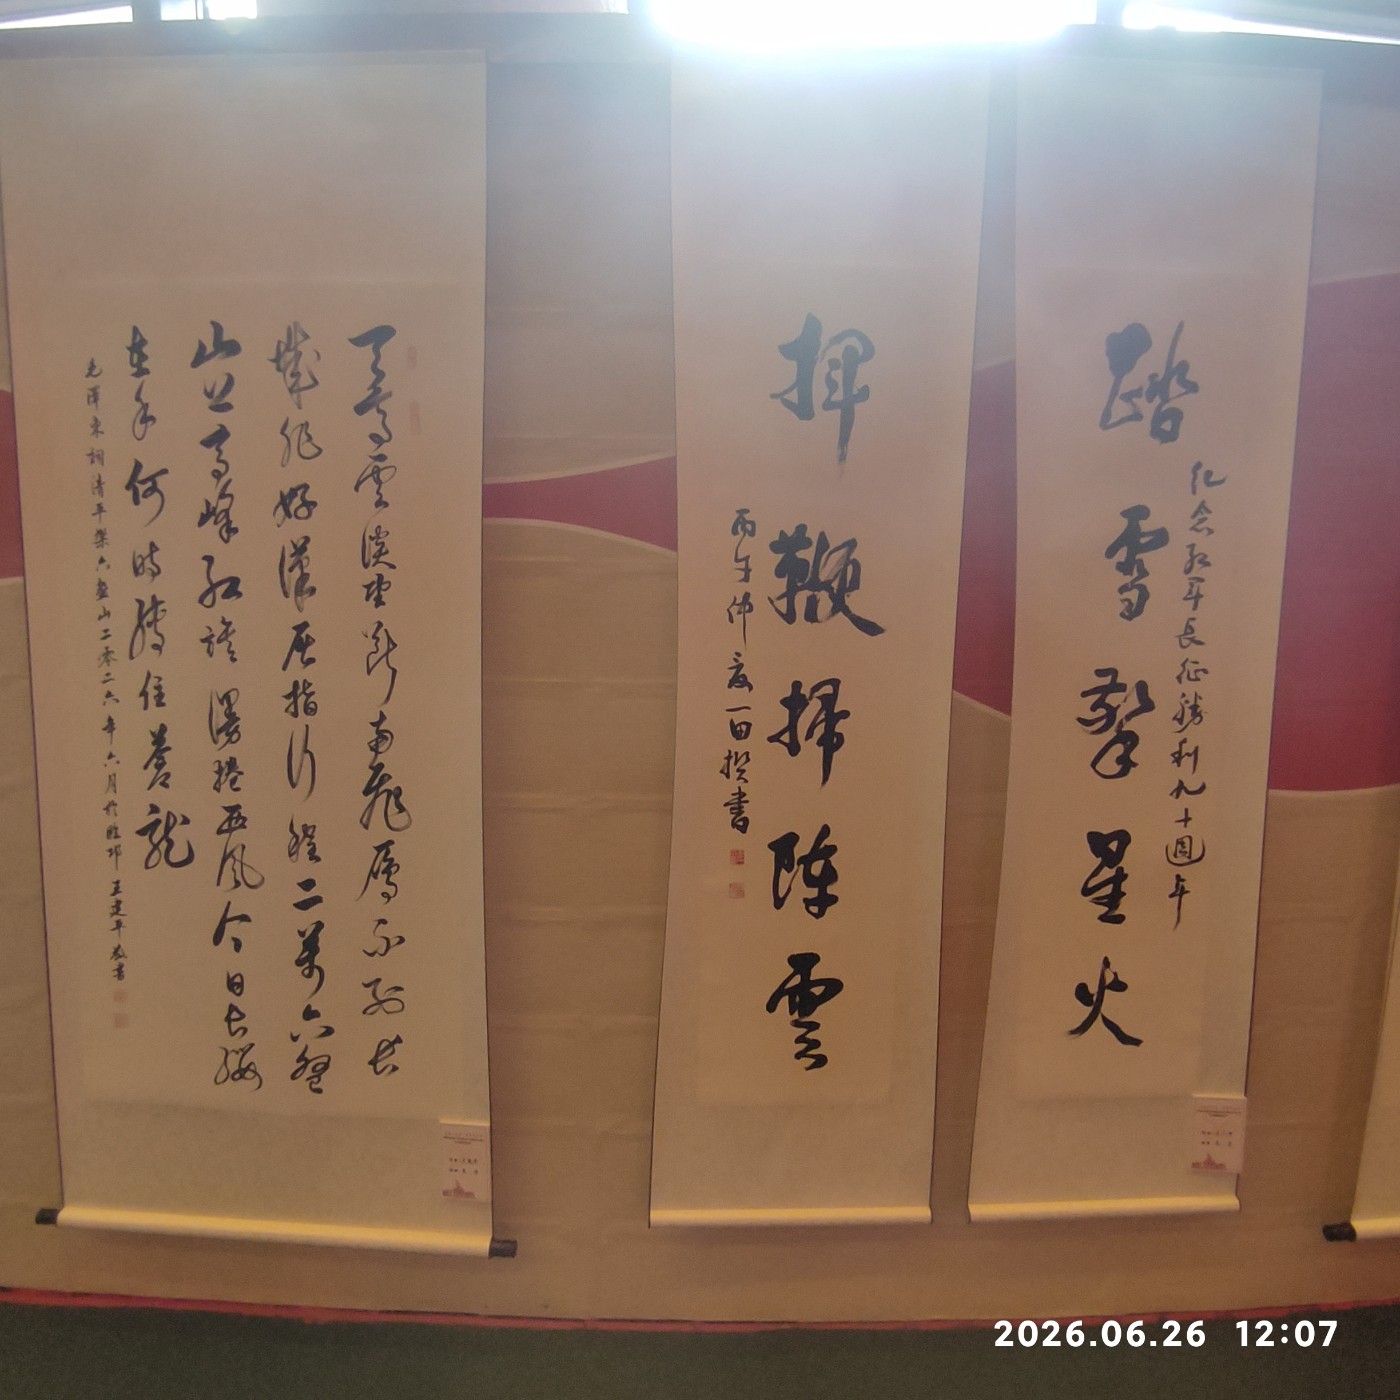 纪念红军長征勝利九十週年
踏雪擎星火
揮鞭掃陣雲
丙午仲夏一田撰書
天高雲淡望斷南飛雁不到長
城非好漢屈指行程二萬六盤
山上高峰红旗漫捲西風今日長纓
在手何時縛住蒼龍
毛澤東詞清平樂六盤山二零二六年六月於臨邛王建平敬書
2026.06.26 12:07